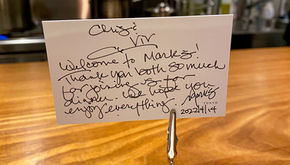 Chris &
Viv
Welcome to Mark's!
Thank you both so much
for joining us for
dinner. We hope you
enjoy everything.
2022/4/14